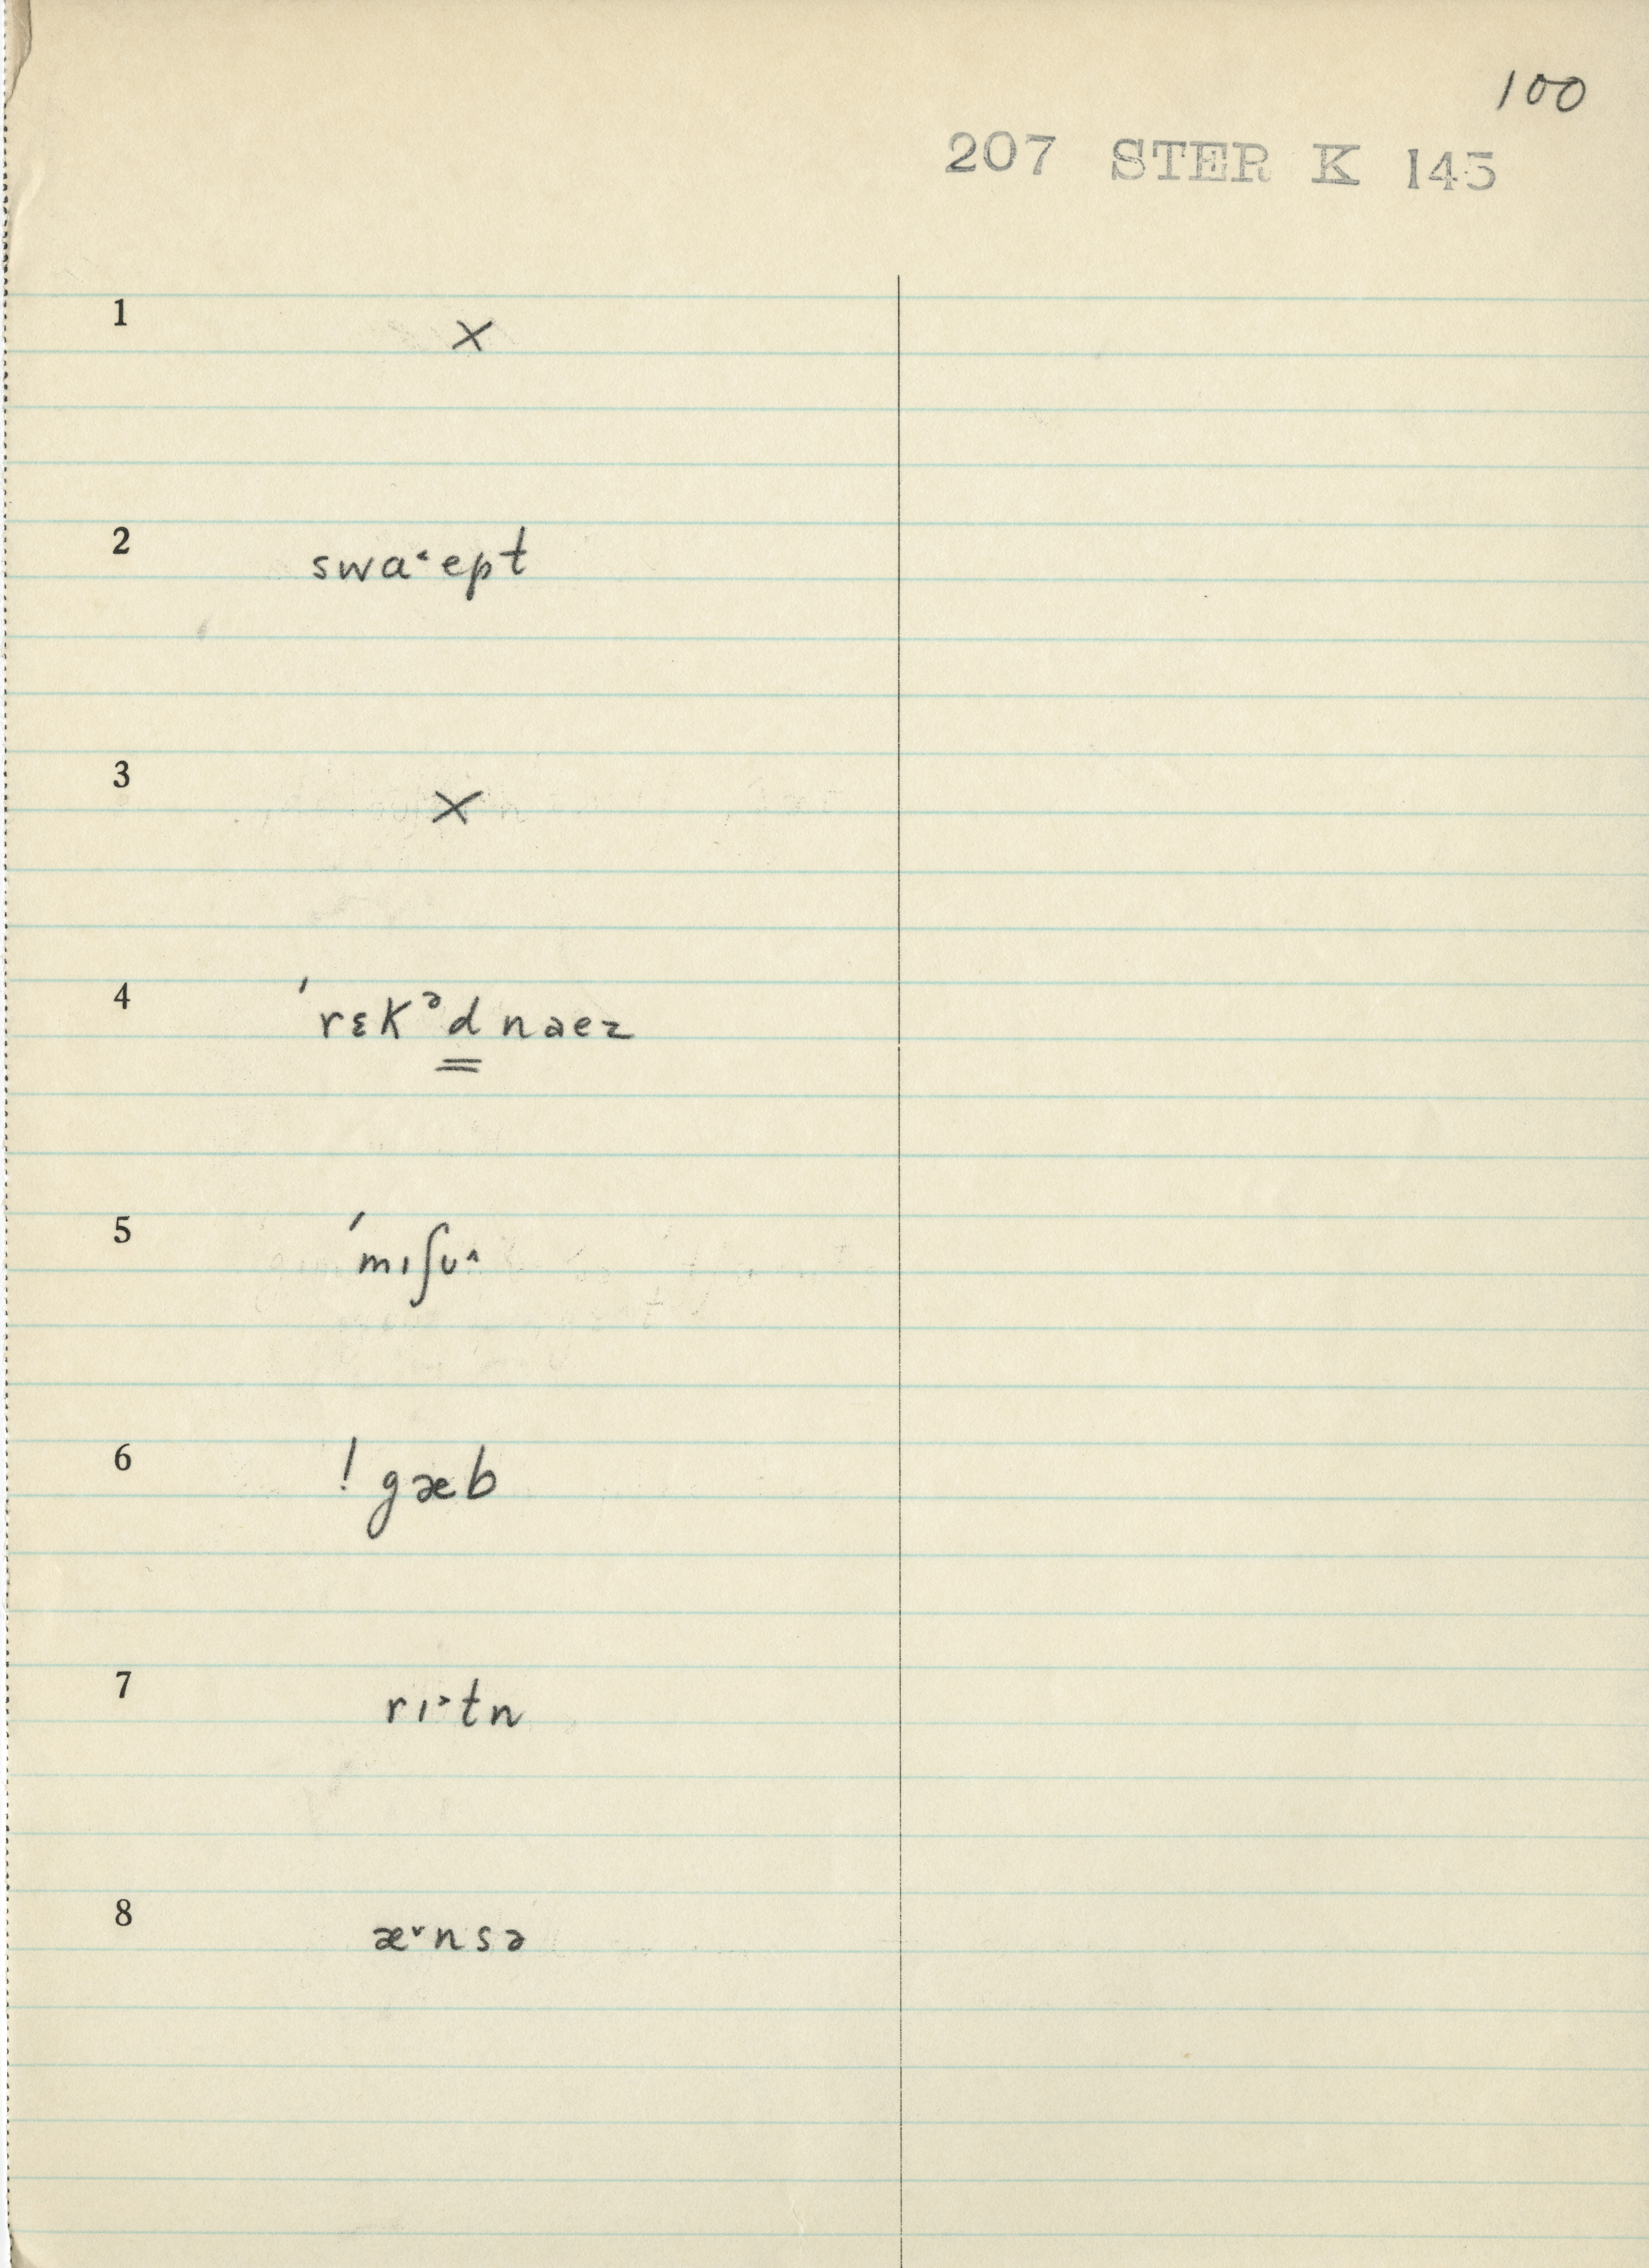 100
207 STER K 145
1 ×
2 swa˂ept
3 ×
4 ˈrɛkᵊd naez
5 ˈmɪʃʊ˄
6 ! gæb
7 rɪ˃tn
8 æ˅nsə